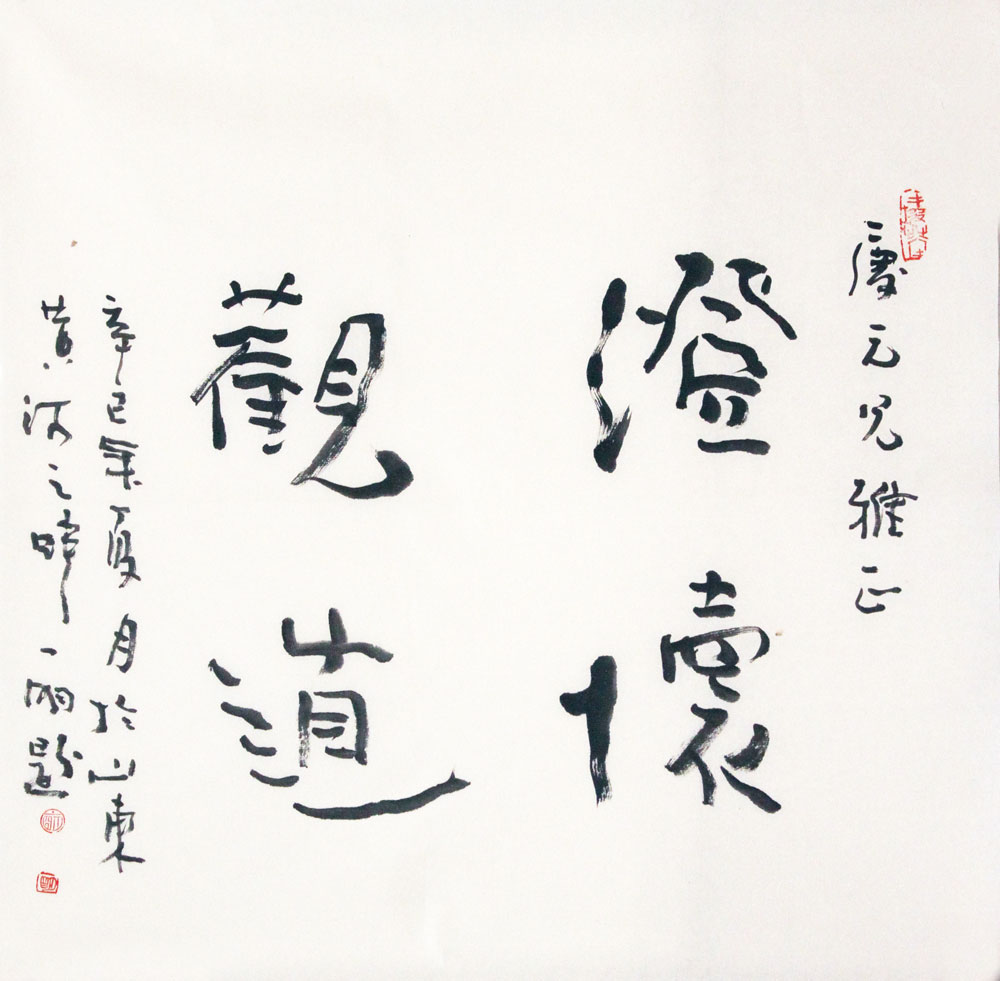 慶元兄雅正
澄懷
觀道
辛巳年夏月於山東
黄河之畔一題